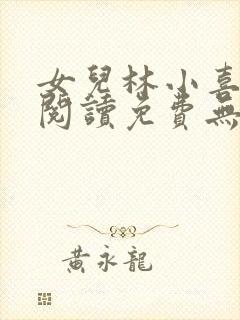 女兒林小喜
閱讀免費無
黃永龍